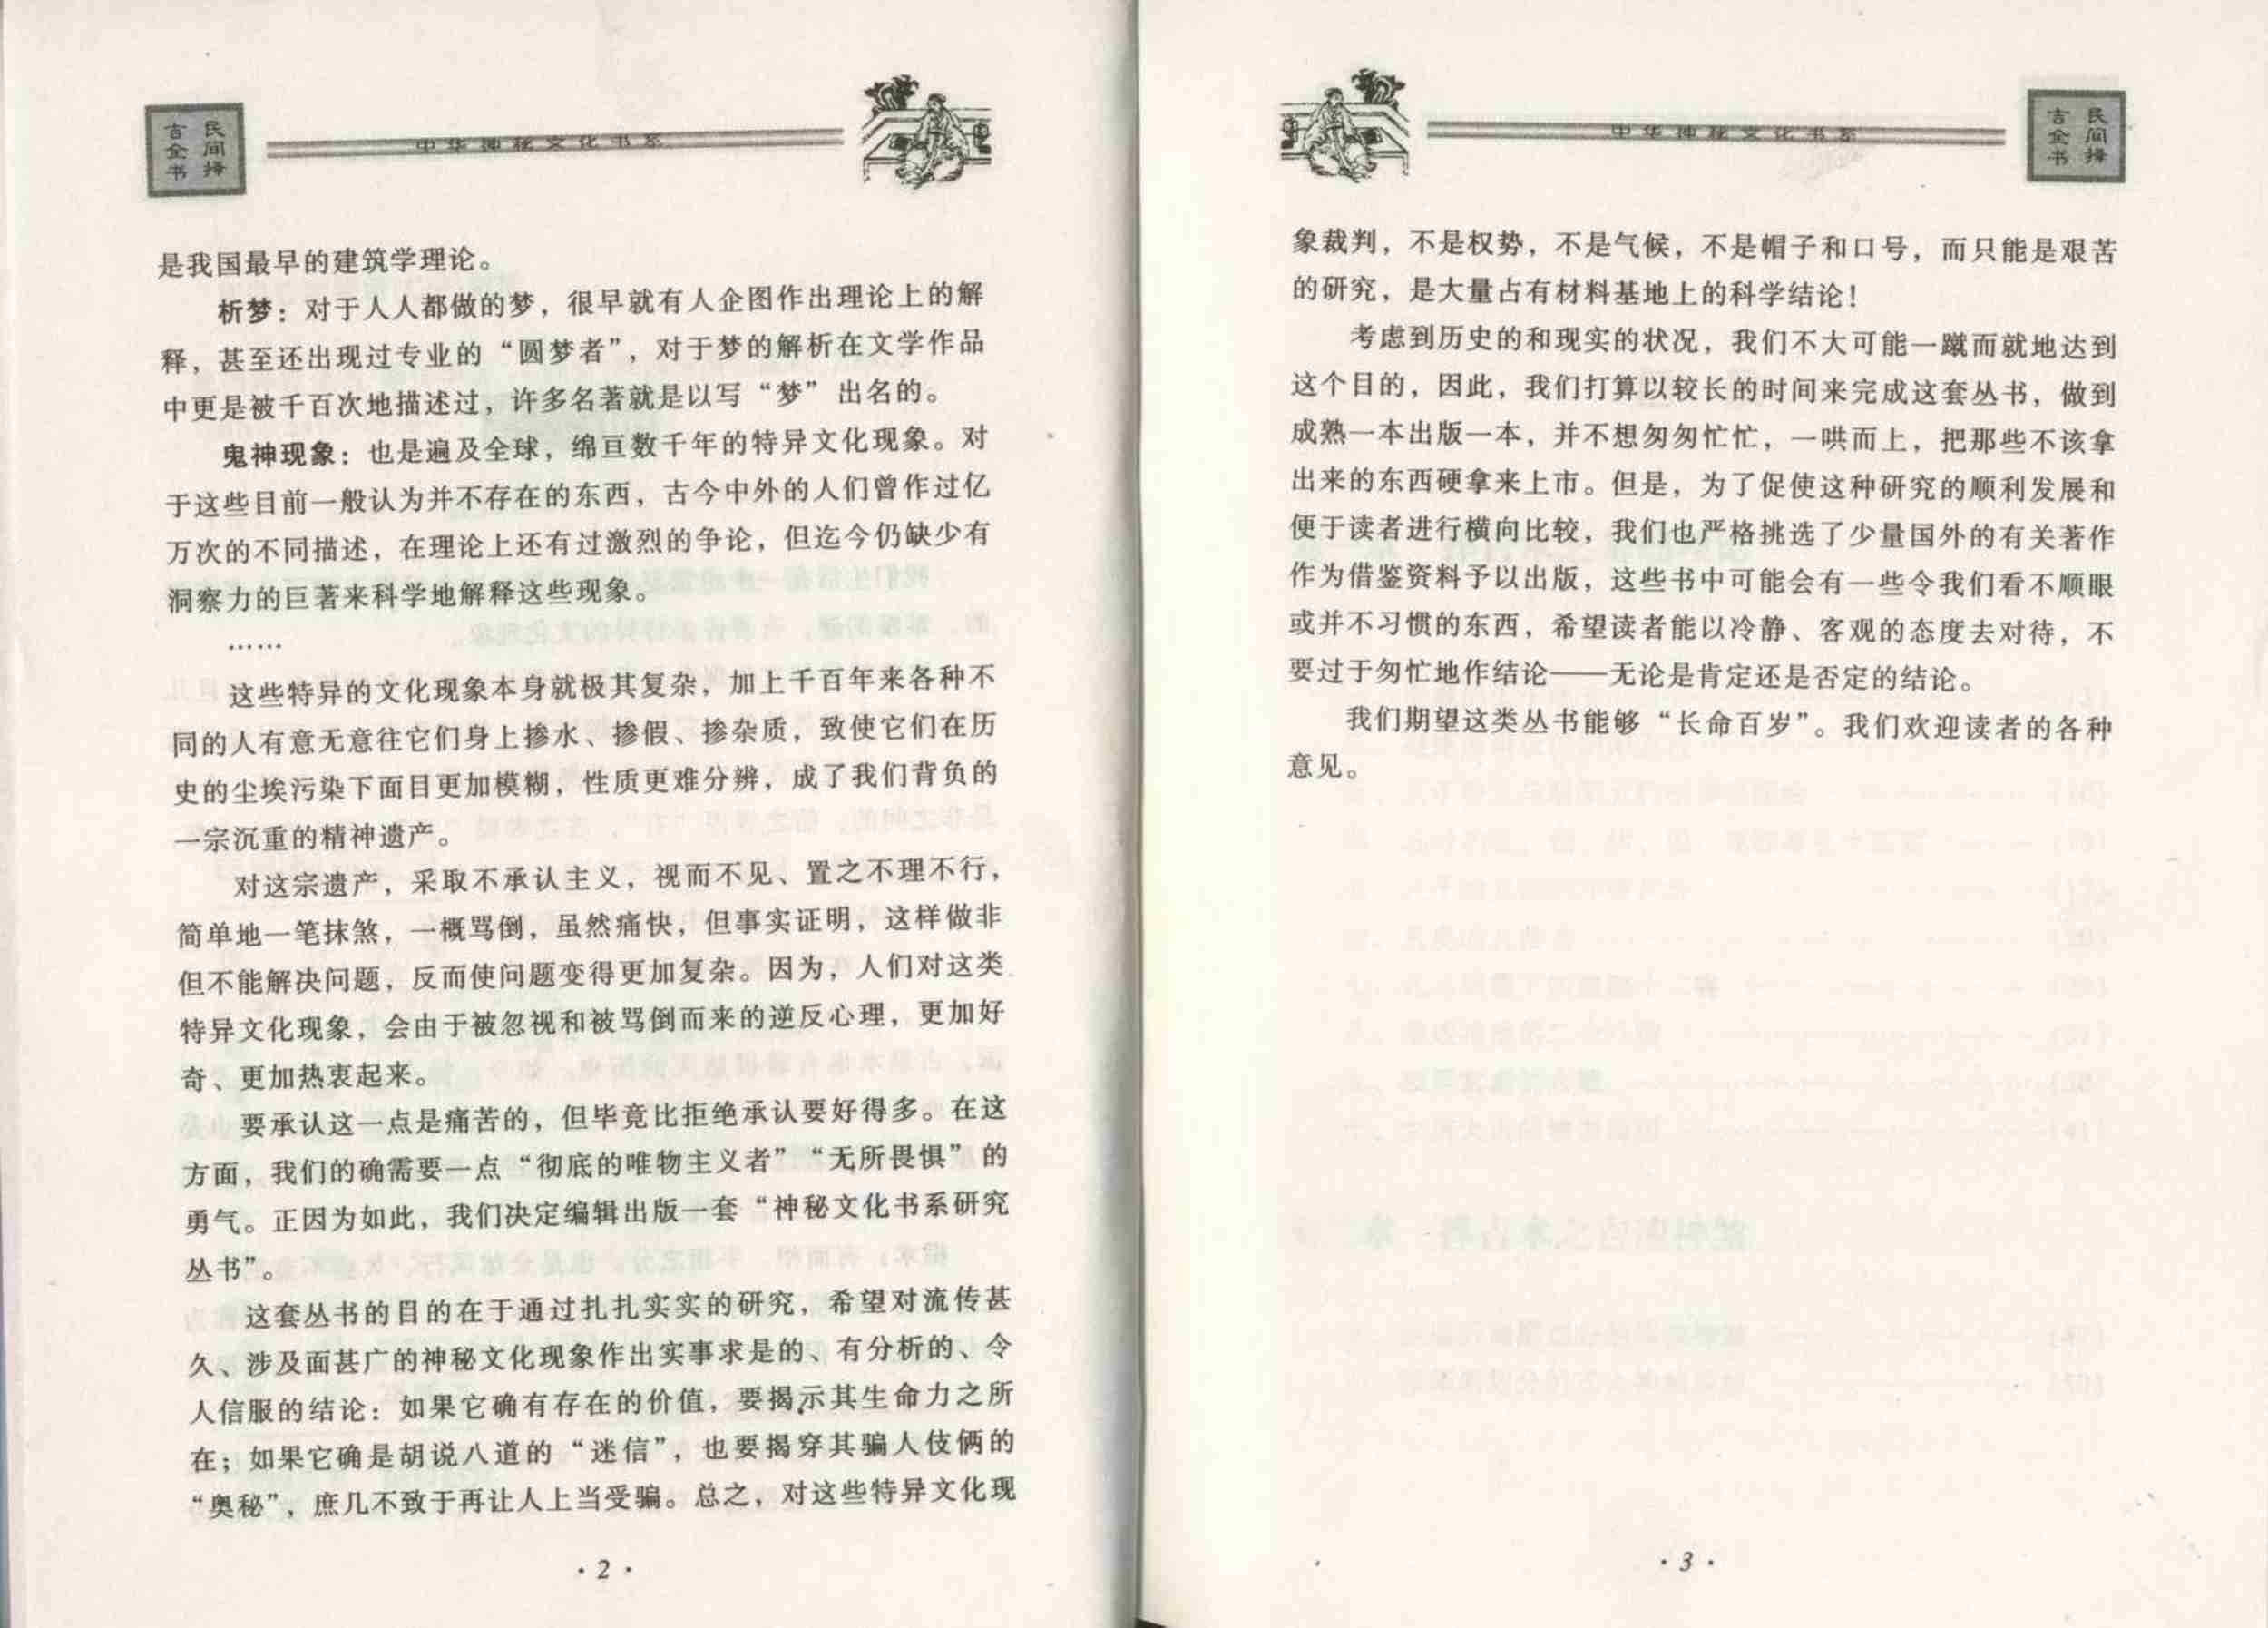 民间择
吉全书
中华神秘文化书系
是我国最早的建筑学理论。
析梦：对于人人都做的梦，很早就有人企图作出理论上的解
释，甚至还出现过专业的“圆梦者”，对于梦的解析在文学作品
中更是被千百次地描述过，许多名著就是以写“梦”出名的。
鬼神现象：也是遍及全球，绵亘数千年的特异文化现象。对
于这些目前一般认为并不存在的东西，古今中外的人们曾作过亿
万次的不同描述，在理论上还有过激烈的争论，但迄今仍缺少有
洞察力的巨著来科学地解释这些现象。
……
这些特异的文化现象本身就极其复杂，加上千百年来各种不
同的人有意无意往它们身上掺水、掺假、掺杂质，致使它们在历
史的尘埃污染下面目更加模糊，性质更难分辨，成了我们背负的
一宗沉重的精神遗产。
对这宗遗产，采取不承认主义，视而不见、置之不理不行，
简单地一笔抹煞，一概骂倒，虽然痛快，但事实证明，这样做非
但不能解决问题，反而使问题变得更加复杂。因为，人们对这类
特异文化现象，会由于被忽视和被骂倒而来的逆反心理，更加好
奇、更加热衷起来。
要承认这一点是痛苦的，但毕竟比拒绝承认要好得多。在这
方面，我们的确需要一点“彻底的唯物主义者”“无所畏惧”的
勇气。正因为如此，我们决定编辑出版一套“神秘文化书系研究
丛书”。
这套丛书的目的在于通过扎扎实实的研究，希望对流传甚
久、涉及面甚广的神秘文化现象作出实事求是的、有分析的、令
人信服的结论：如果它确有存在的价值，要揭示其生命力之所
在；如果它确是胡说八道的“迷信”，也要揭穿其骗人伎俩的
“奥秘”，庶几不致于再让人上当受骗。总之，对这些特异文化现
·2·
中华神秘文化书系
民间择
吉全书
象裁判，不是权势，不是气候，不是帽子和口号，而只能是艰苦
的研究，是大量占有材料基地上的科学结论！
考虑到历史的和现实的状况，我们不大可能一蹴而就地达到
这个目的，因此，我们打算以较长的时间来完成这套丛书，做到
成熟一本出版一本，并不想匆匆忙忙，一哄而上，把那些不该拿
出来的东西硬拿来上市。但是，为了促使这种研究的顺利发展和
便于读者进行横向比较，我们也严格挑选了少量国外的有关著作
作为借鉴资料予以出版，这些书中可能会有一些令我们看不顺眼
或并不习惯的东西，希望读者能以冷静、客观的态度去对待，不
要过于匆忙地作结论——无论是肯定还是否定的结论。
我们期望这类丛书能够“长命百岁”。我们欢迎读者的各种
意见。
·3·